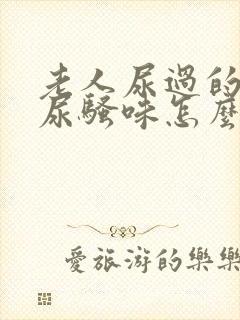 老人尿過的
尿騷味怎麼
愛旅游的樂樂